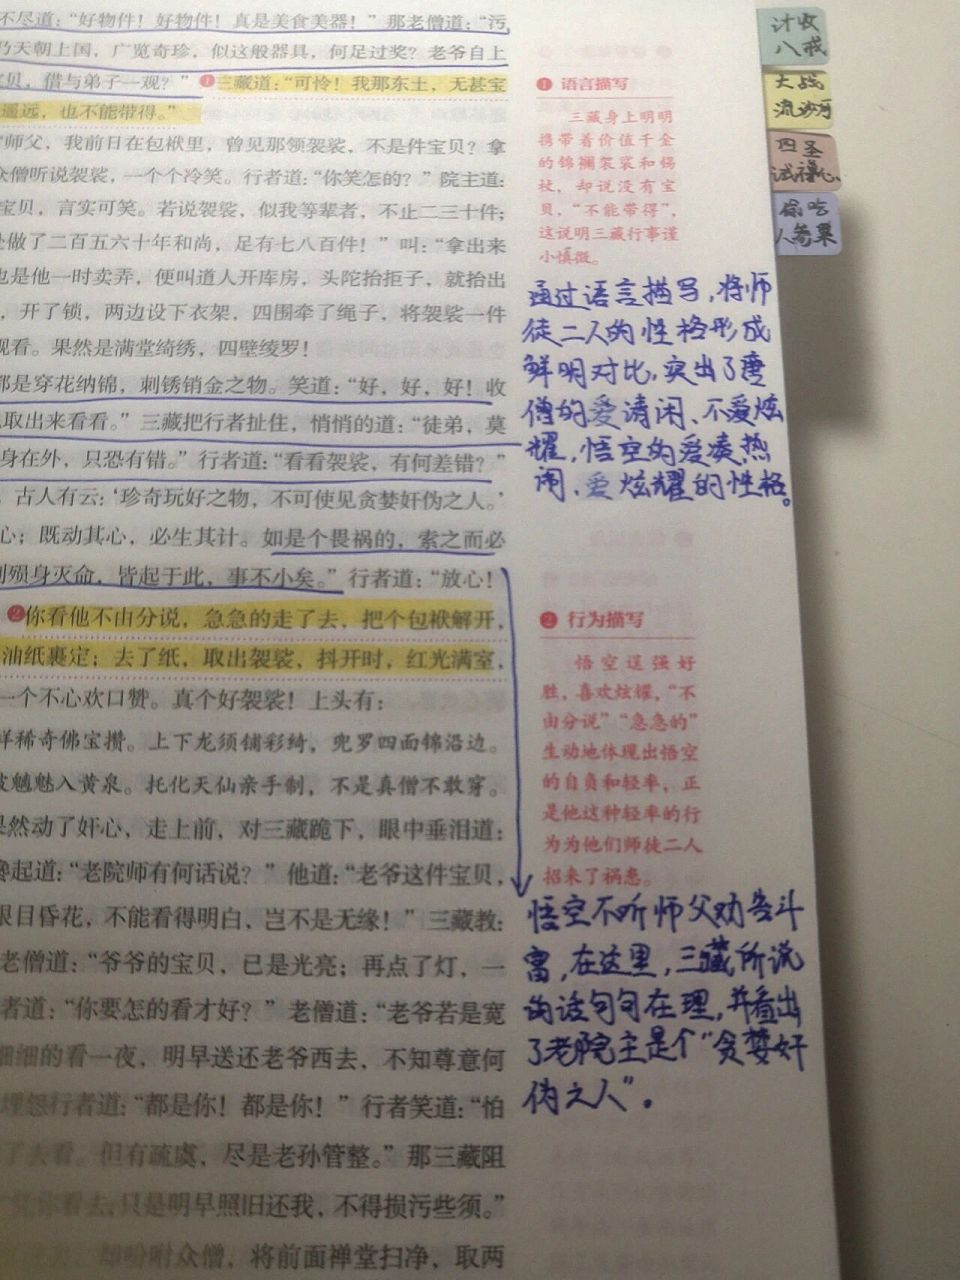 不尽道：“好物件！好物件！真是美食美器！”那老僧道：“污
乃天朝上国，广览奇珍，似这般器具，何足过奖？老爷自上
宝贝，借与弟子一观？”❶三藏道：“可怜！我那东土，无甚宝
遥远，也不能带得。”
“师父，我前日在包袱里，曾见那领袈裟，不是件宝贝？拿
众僧听说袈裟，一个个冷笑。行者道：“你笑怎的？”院主道：
宝贝，言实可笑。若说袈裟，似我等辈者，不止二三十件；
处做了二百五六十年和尚，足有七八百件！”叫：“拿出来
也是他一时卖弄，便叫道人开库房，头陀抬拒子，就抬出
，开了锁，两边设下衣架，四围牵了绳子，将袈裟一件
观看。果然是满堂绮绣，四壁绫罗！
都是穿花纳锦，刺锈销金之物。笑道：“好，好，好！收
取出来看看。”三藏把行者扯住，悄悄的道：“徒弟，莫
身在外，只恐有错。”行者道：“看看袈裟，有何差错？”
。古人有云：‘珍奇玩好之物，不可使见贪婪奸伪之人。’
心；既动其心，必生其计。如是个畏祸的，索之而必
则殒身灭命，皆起于此，事不小矣。”行者道：“放心！
❷你看他不由分说，急急的走了去，把个包袱解开，
油纸裹定；去了纸，取出袈裟，抖开时，红光满室，
一个不心欢口赞。真个好袈裟！上头有：
样稀奇佛宝攒。上下龙须铺彩绮，兜罗四面锦沿边。
魑魅入黄泉。托化天仙亲手制，不是真僧不敢穿。
果然动了奸心，走上前，对三藏跪下，眼中垂泪道：
搀起道：“老院师有何话说？”他道：“老爷这件宝贝，
眼目昏花，不能看得明白，岂不是无缘！”三藏教：
老僧道：“爷爷的宝贝，已是光亮；再点了灯，一
者道：“你要怎的看才好？”老僧道：“老爷若是宽
细细的看一夜，明早送还老爷西去，不知尊意何
埋怨行者道：“都是你！都是你！”行者笑道：“怕
了去看。但有疏虞，尽是老孙管整。”那三藏阻
你看去；只是明早照旧还我，不得损污些须。”
却吩咐众僧，将前面禅堂扫净，取两
❶ 语言描写
三藏身上明明
携带着价值千金
的锦襕袈裟和锡
杖，却说没有宝
贝，“不能带得”，
这说明三藏行事谨
小慎微。
通过语言描写，将师
徒二人的性格形成
鲜明对比，突出了唐
僧的爱清闲、不爱炫
耀，悟空的爱凑热
闹、爱炫耀的性格。
❷ 行为描写
悟空逞强好
胜，喜欢炫耀，“不
由分说”“急急的”
生动地体现出悟空
的自负和轻率，正
是他这种轻率的行
为为他们师徒二人
招来了祸患。
悟空不听师父劝告斗
富，在这里，三藏所说
的话句句在理，并看出
了老院主是个“贪婪奸
伪之人”。
计收
八戒
大战
流沙河
四圣
试禅心
偷吃
人参果